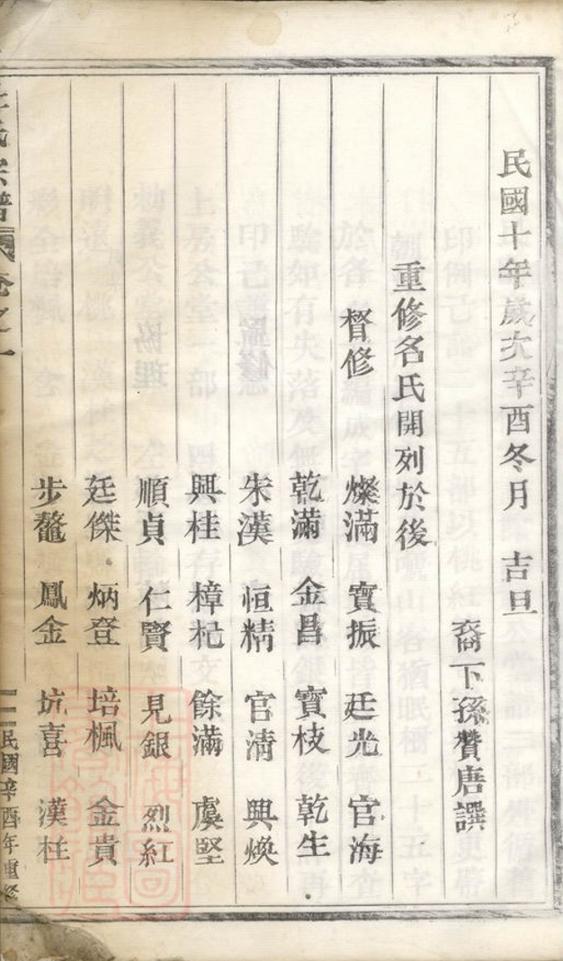 民國十年歲次辛酉冬月 吉旦
裔下孫贊唐譔
重修名氏開列於後
督修 燦滿 寶振 廷光 官海
乾滿 金昌 寶枝 乾生
朱漢 恒精 官清 興煥
興桂 樟杞 餘滿 虞堅
順貞 仁賢 見銀 烈紅
廷傑 炳登 培楓 金貴
步鼇 鳳金 坑喜 漢柱
氏宗譜 卷之一
民國辛酉年重修